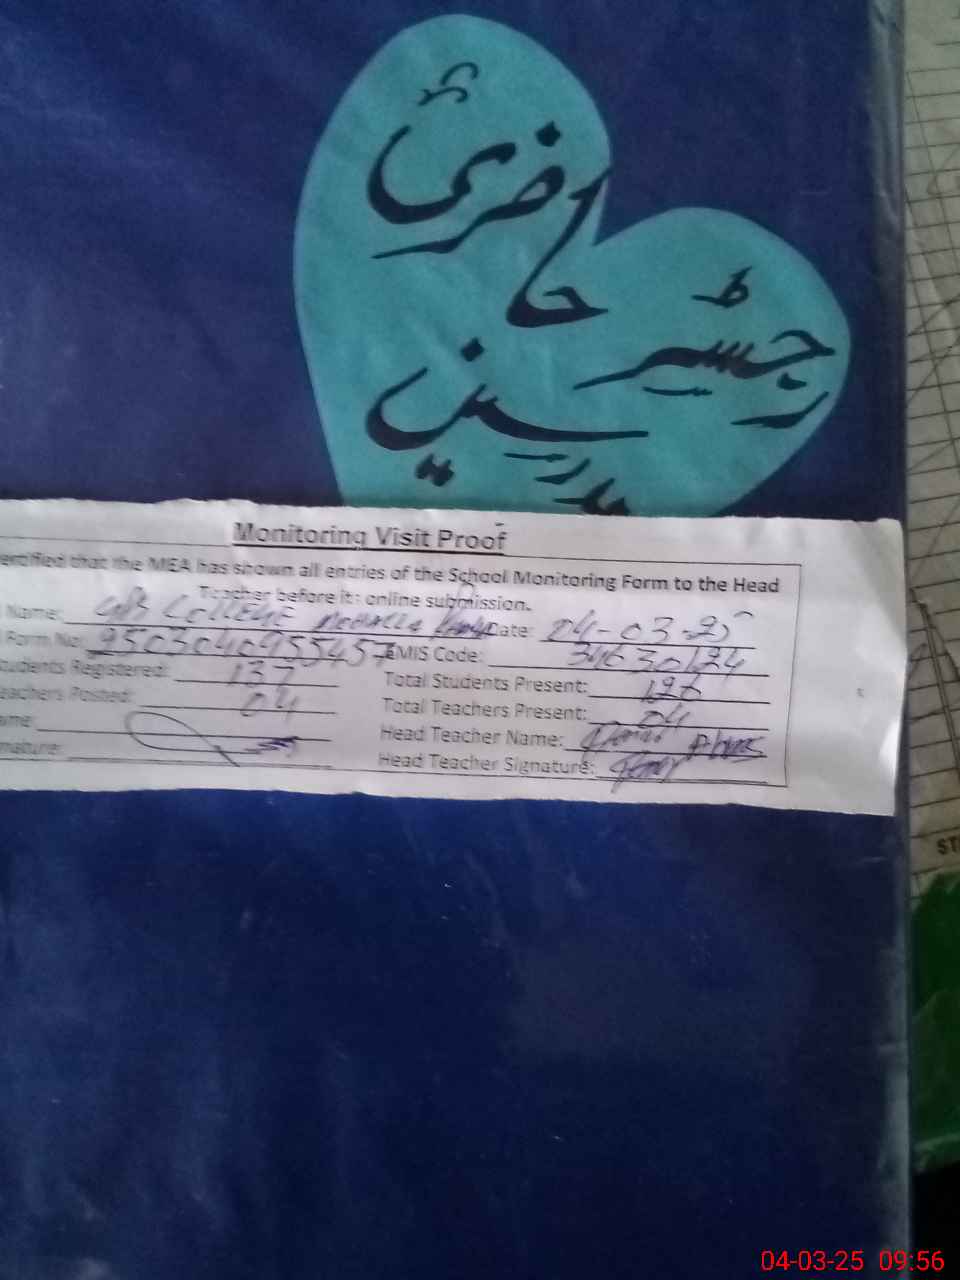 رجسٹر حاضری
مدرسین
Monitoring Visit Proof
that the MEA has shown all entries of the School Monitoring Form to the Head
Teacher before it's online submission.
Name: COLLEGE Date: 04-03-25
Form No: 250304095545 EMIS Code: 34630124
Students Registered: 137 Total Students Present: 126
Teachers Posted: 04 Total Teachers Present: 04
Head Teacher Name: Abbas
Head Teacher Signature:
04-03-25 09:56